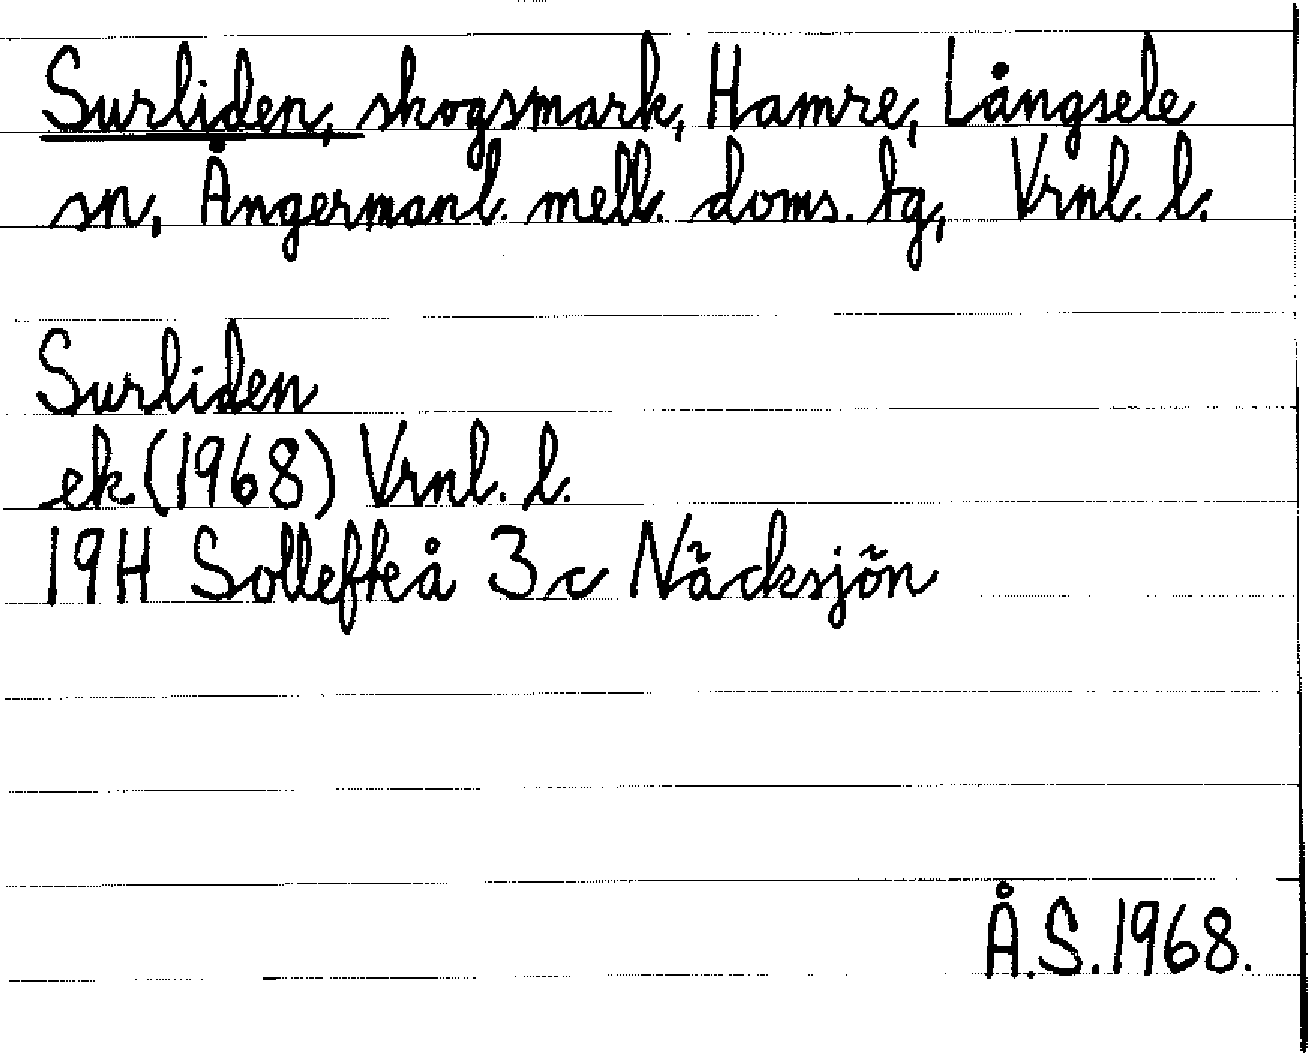 Surliden, skogsmark, Hamre, Långsele
sn, Ångermanl. mell. doms. tg, Vrnl. l.
Surliden
ek (1968) Vrnl. l.
19H Sollefteå 3c Näcksjön
Å.S. 1968.